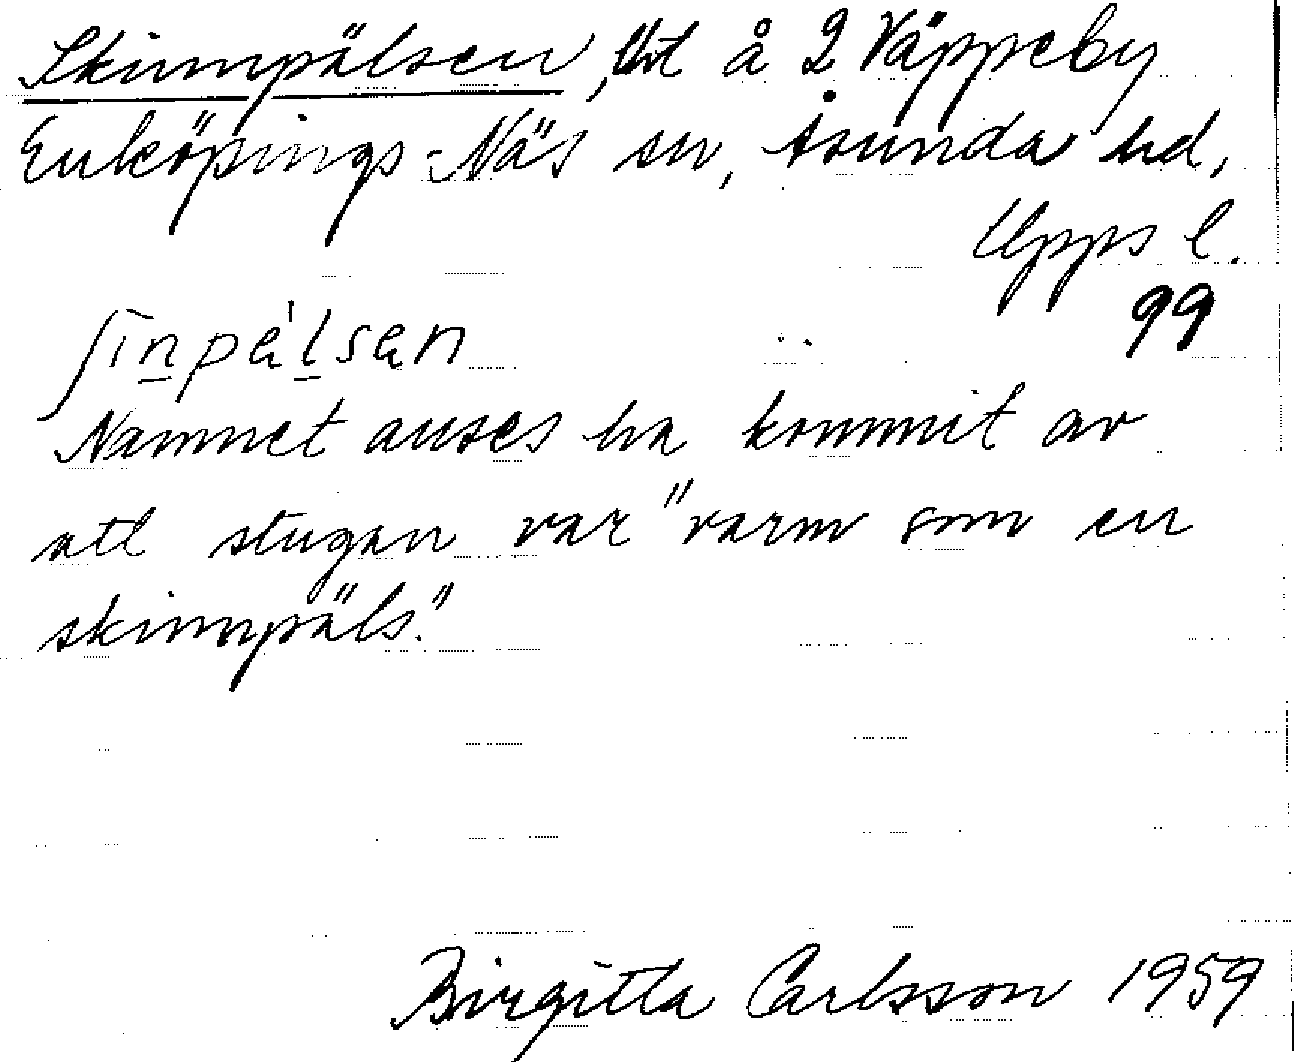 Skinnpälsen, Uht å 2 Väppeby
Enköpings-Näs sn, Åsunda hd,
Upps l.
99
ʃinpälsən
Namnet anses ha kommit av
att stugan var "varm som en
skinnpäls."
Birgitta Carlsson 1959